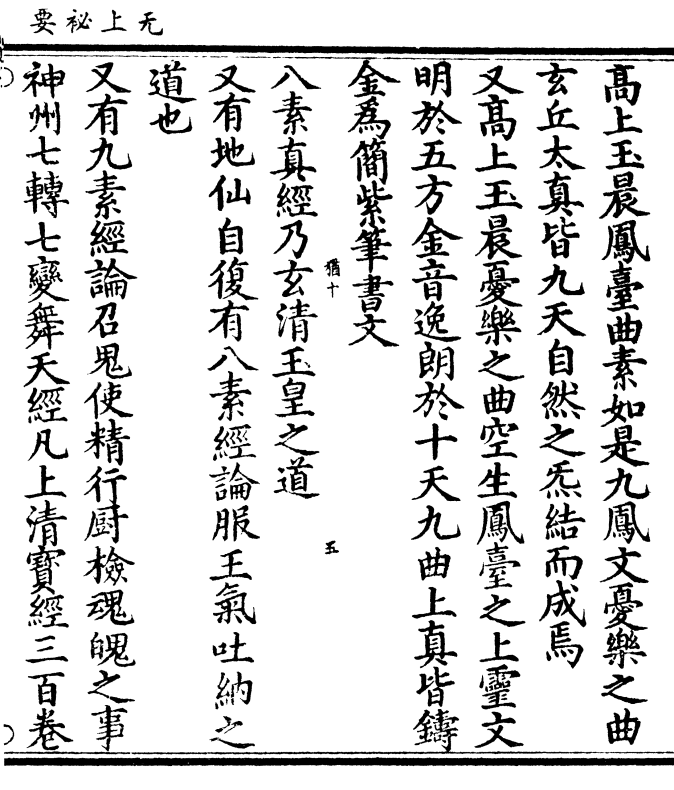 无上祕要
髙上玉晨鳳臺曲素如是九鳳文憂樂之曲
玄丘太真皆九天自然之炁結而成焉
又髙上玉晨憂樂之曲空生鳳臺之上靈文
明於五方金音逸朗於十天九曲上真皆鑄
金爲簡紫筆書文
猶十
五
八素真經乃玄清玉皇之道
又有地仙自復有八素經論服王氣吐納之
道也
又有九素經論召鬼使精行厨檢魂魄之事
神州七轉七變舞天經凡上清寳經三百卷